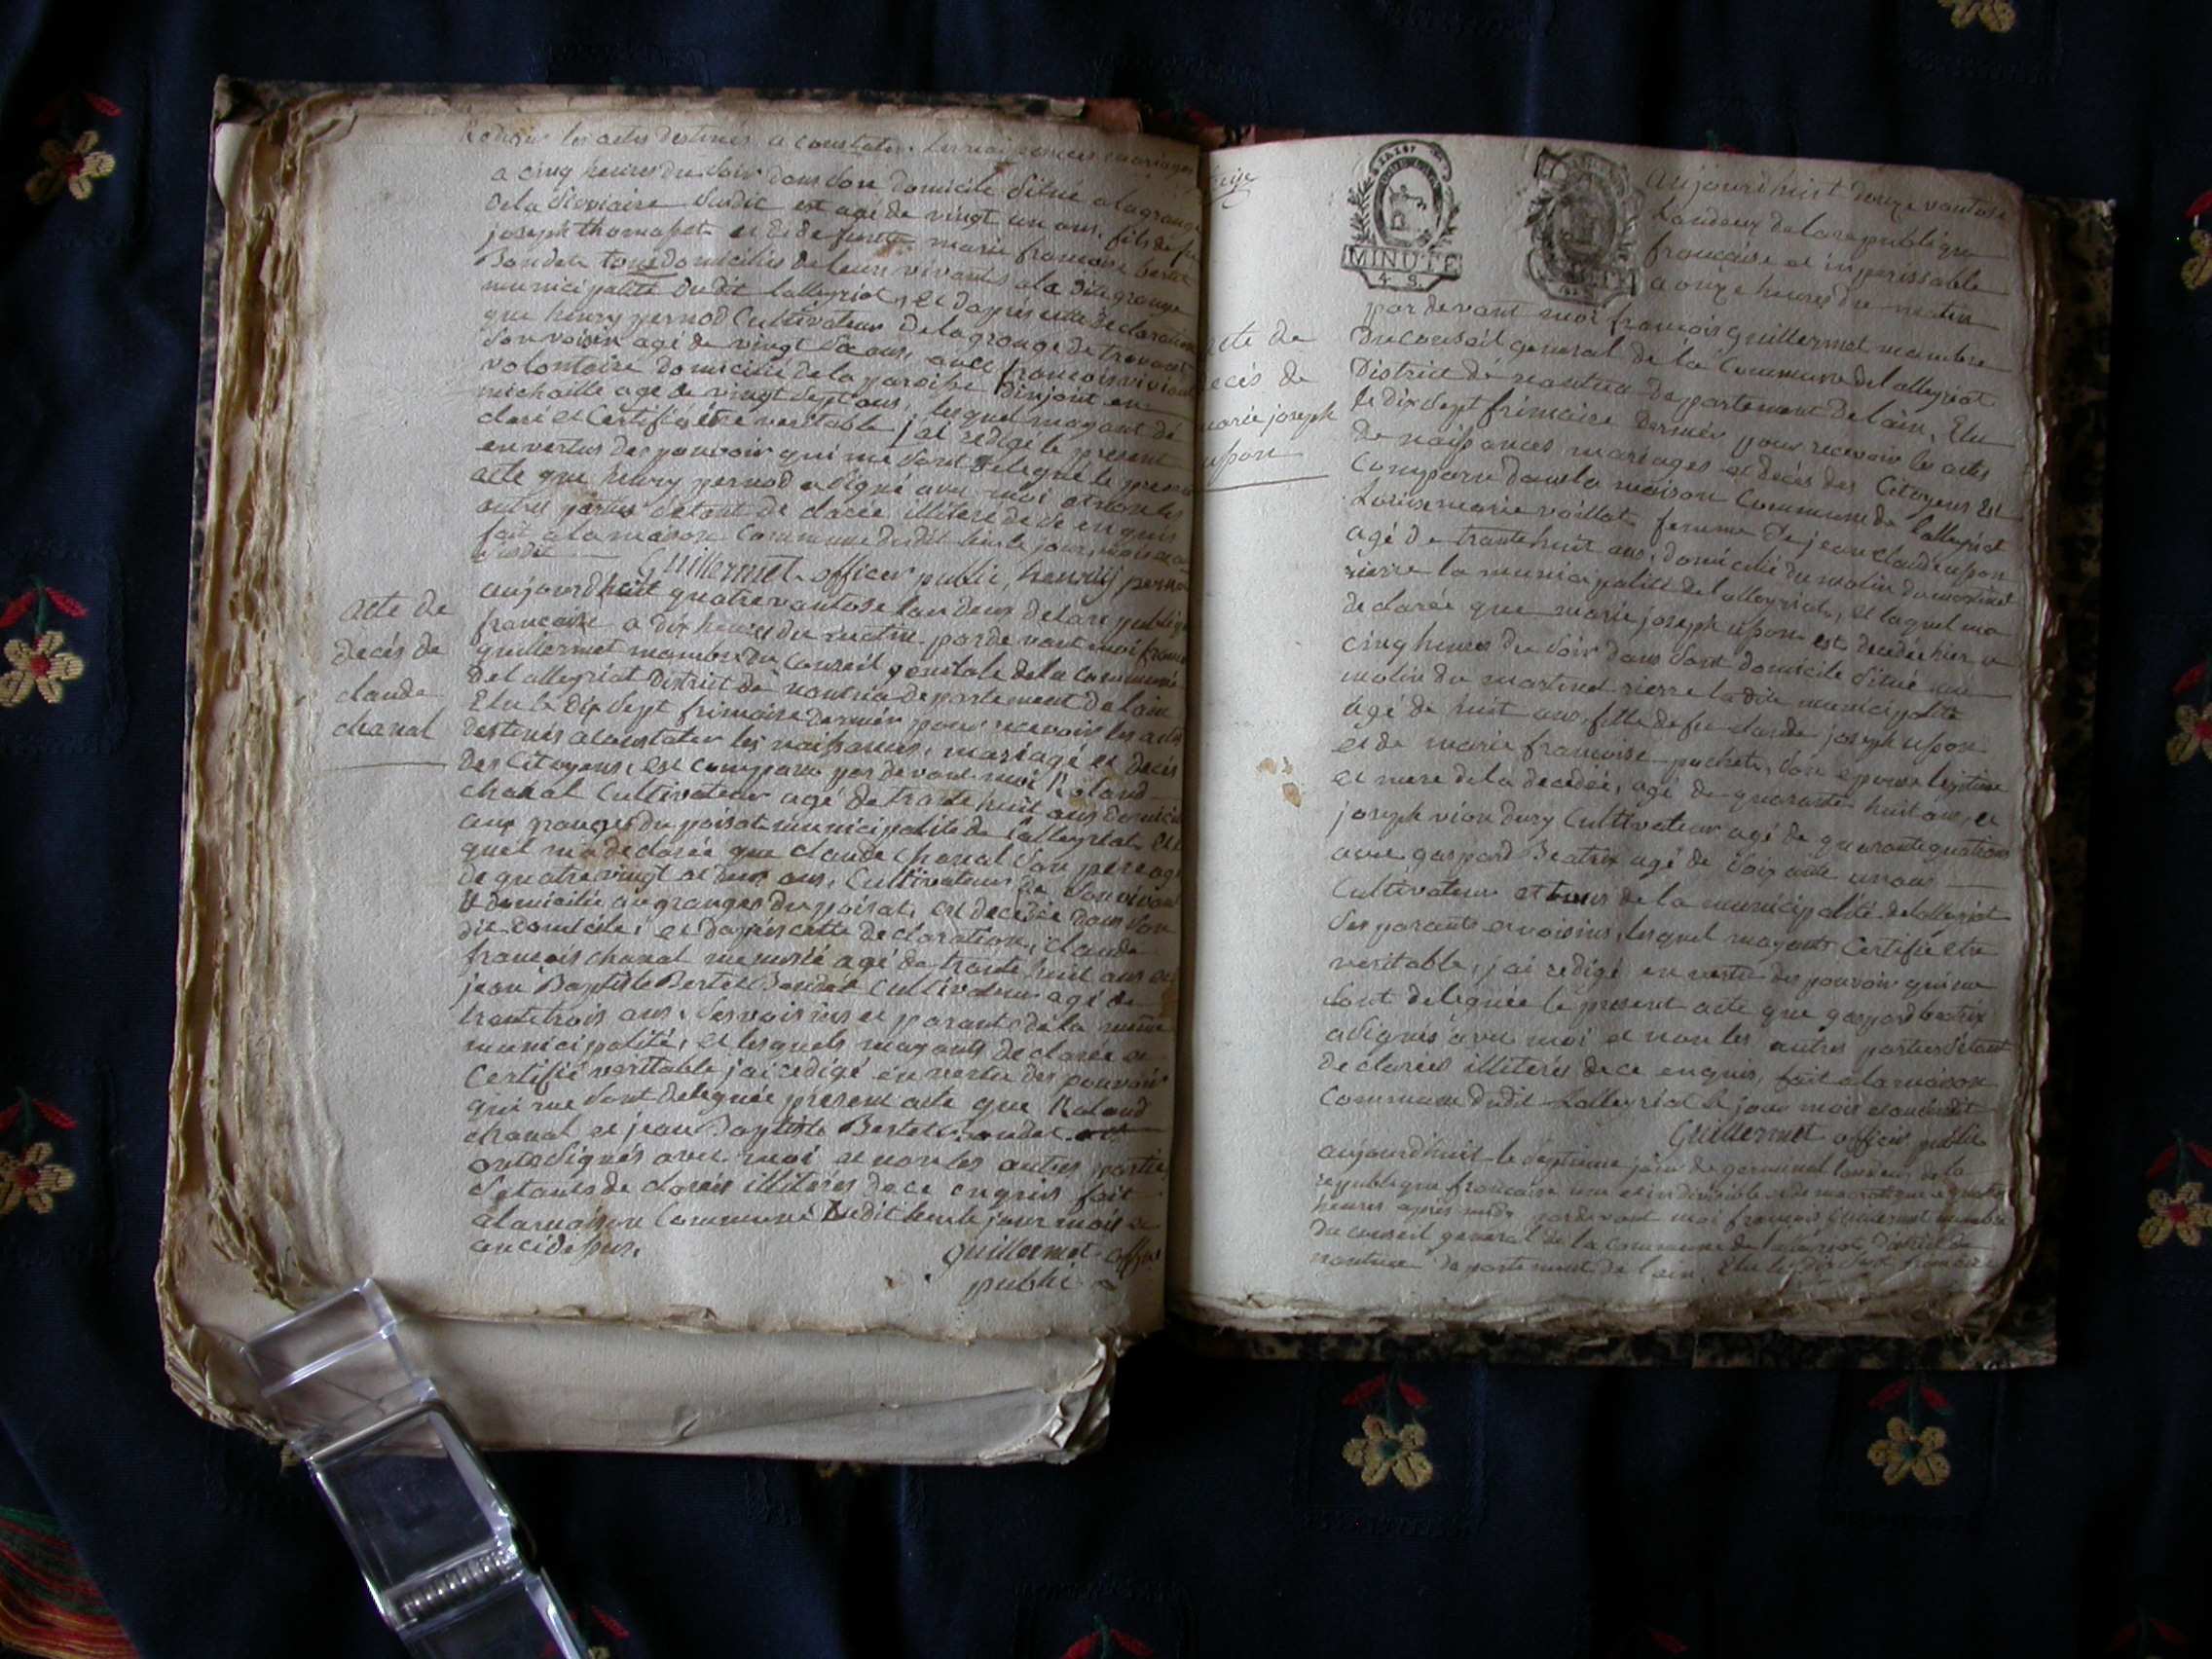 Rediger les actes destinés a constater les naissances mariages
a cinq heures du soir dans son domicile situé a la grange
dela susdit est agé de vingt un ans, fils de feu
joseph thomasset et de defunte marie francoise bertet
Bondet tous domiciliés de leur vivants a la dite grange
municipalité dudit lalleyriat, et dapres cette declaration
que henry pernod Cultivateur dela grange de
son voisin agé de vingt ans, avec francois
volontaire domicilié dela paroisse dinjout en
michaille agé de vingt sept ans, lesquel mayant dé
claré et Certifié être veritable jai redigé le present
en vertus des pouvoir qui me sont delegué le present
acte que henry pernod a signé avec moi et non les
autres parties setant de clarée illiteré de ce enquis
fait a la maison Commune dudit lieu le jour mois et an
susdit Guillermet officier public, henry pernod
acte de
decés de
claude
chanal
aujourdhuit quatre vantose lan deux delare publique
francaise a dix heures du matin par de vant moi francois
guillermet mambre du Conseil generale dela Commune
del alleyriat District de nantua departement de lain
Elu le dix sept frimaire dernier pour recevoir les actes
destinés a constater les naissances, mariage et decés
des Citoyens, est comparu par devant moi Roland
chanal Cultivateur agé de trante huit ans domicilié
aux granges du poisat municipalité de lalleyriat, le
quel ma declarée que claude chanal son pere agé
de quatre vingt et deux ans, Cultivateur de son vivant
domicilié au granges du poisat, est decedée dans son
dit domicile, et dapres cette declaration, claude
francois chanal agé de trante huit ans et
jean Baptiste Bertet Bondet Cultivateur agé de
trante trois ans, ses voisins et parants dela même
municipalité, et lesquels mayants declarée et
Certifié verittable jai redigé en vertu des pouvoir
qui me sont deleguée present acte que Roland
chanal et jean Baptiste Bertet bondet
ont signés avec moi et non les autres partie
setants de clarés illiterés de ce enquis fait
a la maison Commune dudit lieu le jour mois et
an cidessus.
guillermet officier
public
MINUTE
4. S.
aujourdhuit douze vantose
landeux dela republique
francaise et imperissable
a onze heures du matin
acte de
decés de
marie joseph
upon
par devant moi francois guillermet mambre
du Conseil general de la Commune del alleyriat
District de nantua departement de lain, Elu
le dix sept frimaire dernier pour recevoir les actes
de naissances mariages et decés des Citoyens est
Comparu dans la maison Commune de lalleyriat
Louise marie vaillat femme de jean claude upon
agé de trante huit ans, domicilié du molin du martinet
rierre la municipalité del alleyriat, et laquel ma
declarée que marie joseph upon est decedée hier a
cinq heures du soir dans sont domicile situé au
molin du martinet rierre ladite municipalité
agé de huit ans, fille de feu claude joseph upon
et de marie francoise puchet, son epouse legitime
et mere dela decedée, agé de quarante huit ans, et
joseph vion dury Cultivateur agé de quarante quatre ans
avec gaspard Beatrix agé de soix ante un ans
Cultivateur et tous de la municipalité delalleyriat
ses parants et voisins, lesquel mayants Certifié etre
veritable, jai redigé en vertu des pouvoir qui me
sont deleguée le present acte que gaspard beatrix
a signés avec moi et non les autres parties setant
declarées illiterés de ce enquis, fait a la maison
Commune dudit Lalleyriat le jour mois et an susdit
Guillermet officier public
aujourdhuit le septieme jour de germinal landeux de la
republique francaise une et indivisible et democratique a quatre
heures après midy pardevant moi francois Guillermet membre
du conseil general de la commune de lalleyriat District de
nantua departement de lain, Elu le dix sept frimaire